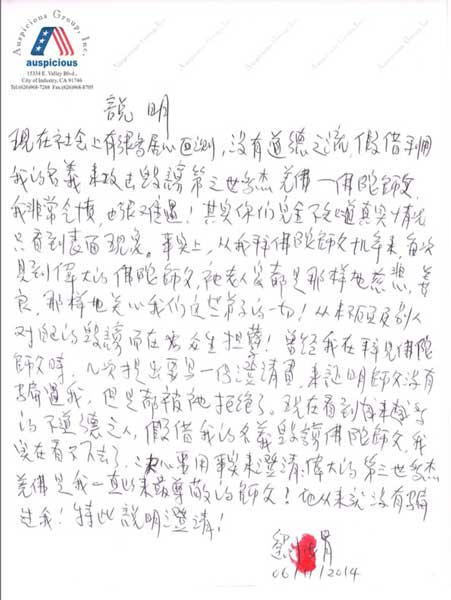 Auspicious Group, Inc.
auspicious
15334 E. Valley Blvd.,
City of Industry, CA 91746
Tel:(626)968-7288 Fax:(626)968-8705
說明
现在社会上有張 居心叵测，没有道德之流，假借利用
我的名義来攻击毁謗第三世多杰羌佛—佛陀師父，
我非常气憤，也 难過！其实你们完全不知道真实情况
只看到表面现象。事实上，从我拜佛陀師父 年来，每次
見到偉大的佛陀師父，祂老人家都是那样地慈悲、善
良，那样地关心我们这些弟子的一切！从来不顾及别人
对祂的毁謗而在為众生担孽！曾经我在拜見佛陀
師父時，几次提出要寫一份澄清書，来証明師父没有
騙過我，但是都被祂拒绝了。现在看到
的不道德之人，假借我的名義毁謗佛陀師父，我
实在看不下去了，决心要用事实来澄清：偉大的第三世多杰
羌佛是我一直以来最尊敬的師父！他从来就没有騙
过我！特此說明澄清！
2014